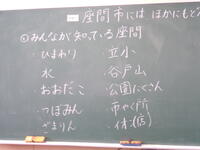 座間市には ほかにもど
◎みんなが知っている座間
ひまわり
水
おおだこ
つぼみん
ざまりん
・立小
・谷戸山
・公園たくさん
・市やく所
・イオン(店)